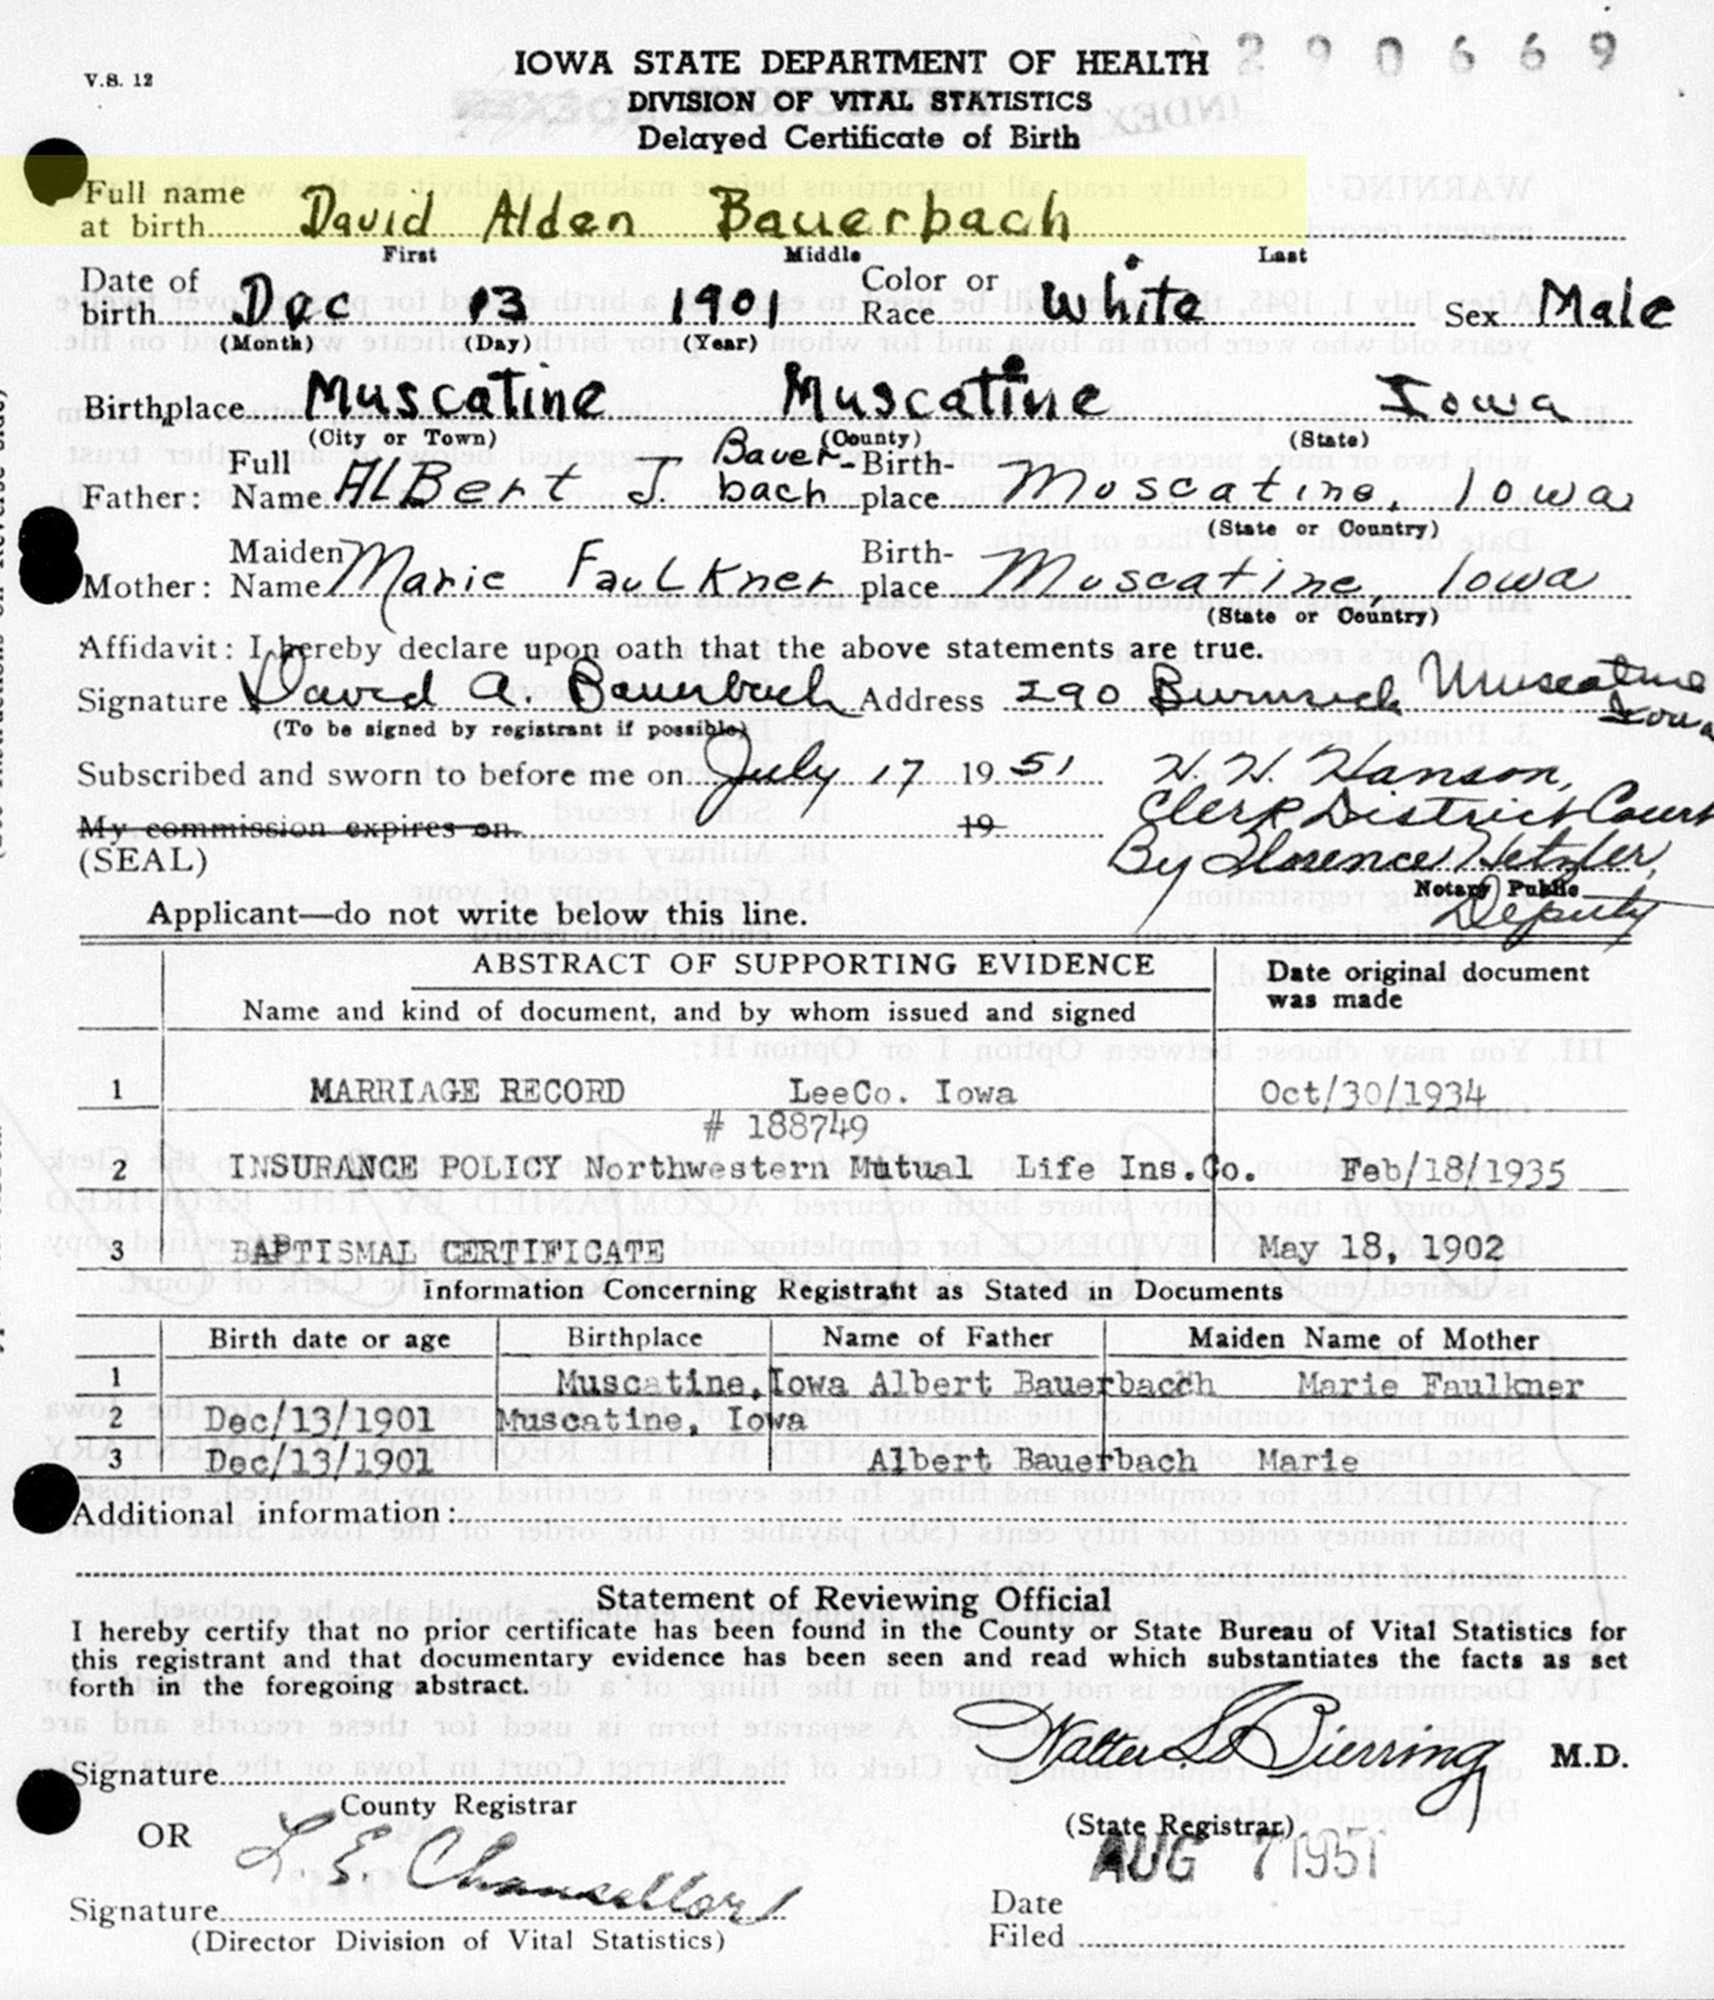 290669
V.S. 12
IOWA STATE DEPARTMENT OF HEALTH
DIVISION OF VITAL STATISTICS
Delayed Certificate of Birth
Full name
at birth David Alden Bauerbach
First Middle Last
Date of
birth Dec 13 1901 Color or Race White Sex Male
(Month) (Day) (Year)
Birthplace Muscatine Muscatine Iowa
(City or Town) (County) (State)
Father: Full Name ALBert J Bauer-bach Birth-place Muscatine, Iowa
(State or Country)
Mother: Maiden Name Marie Faulkner Birth-place Muscatine, Iowa
(State or Country)
Affidavit: I hereby declare upon oath that the above statements are true.
Signature David A. Bauerbach Address 290 Muscatine Iowa
(To be signed by registrant if possible)
Subscribed and sworn to before me on July 17 1951 H. W. Hanson,
Clerk District Court
My commission expires on 19
(SEAL) By Florence Hetzler,
Notary Public
Deputy
Applicant—do not write below this line.
ABSTRACT OF SUPPORTING EVIDENCE
Name and kind of document, and by whom issued and signed
Date original document
was made
1 MARRIAGE RECORD LeeCo. Iowa Oct/30/1934
# 188749
2 INSURANCE POLICY Northwestern Mutual Life Ins.Co. Feb/18/1935
3 BAPTISMAL CERTIFICATE May 18, 1902
Information Concerning Registrant as Stated in Documents
Birth date or age Birthplace Name of Father Maiden Name of Mother
1 Muscatine,Iowa Albert Bauerbacch Marie Faulkner
2 Dec/13/1901 Muscatine, Iowa
3 Dec/13/1901 Albert Bauerbach Marie
Additional information:
Statement of Reviewing Official
I hereby certify that no prior certificate has been found in the County or State Bureau of Vital Statistics for
this registrant and that documentary evidence has been seen and read which substantiates the facts as set
forth in the foregoing abstract.
Walter L. Bierring M.D.
Signature
County Registrar
(State Registrar)
OR
AUG 7 1951
L. E. Chancellor
Signature
Date
Filed
(Director Division of Vital Statistics)